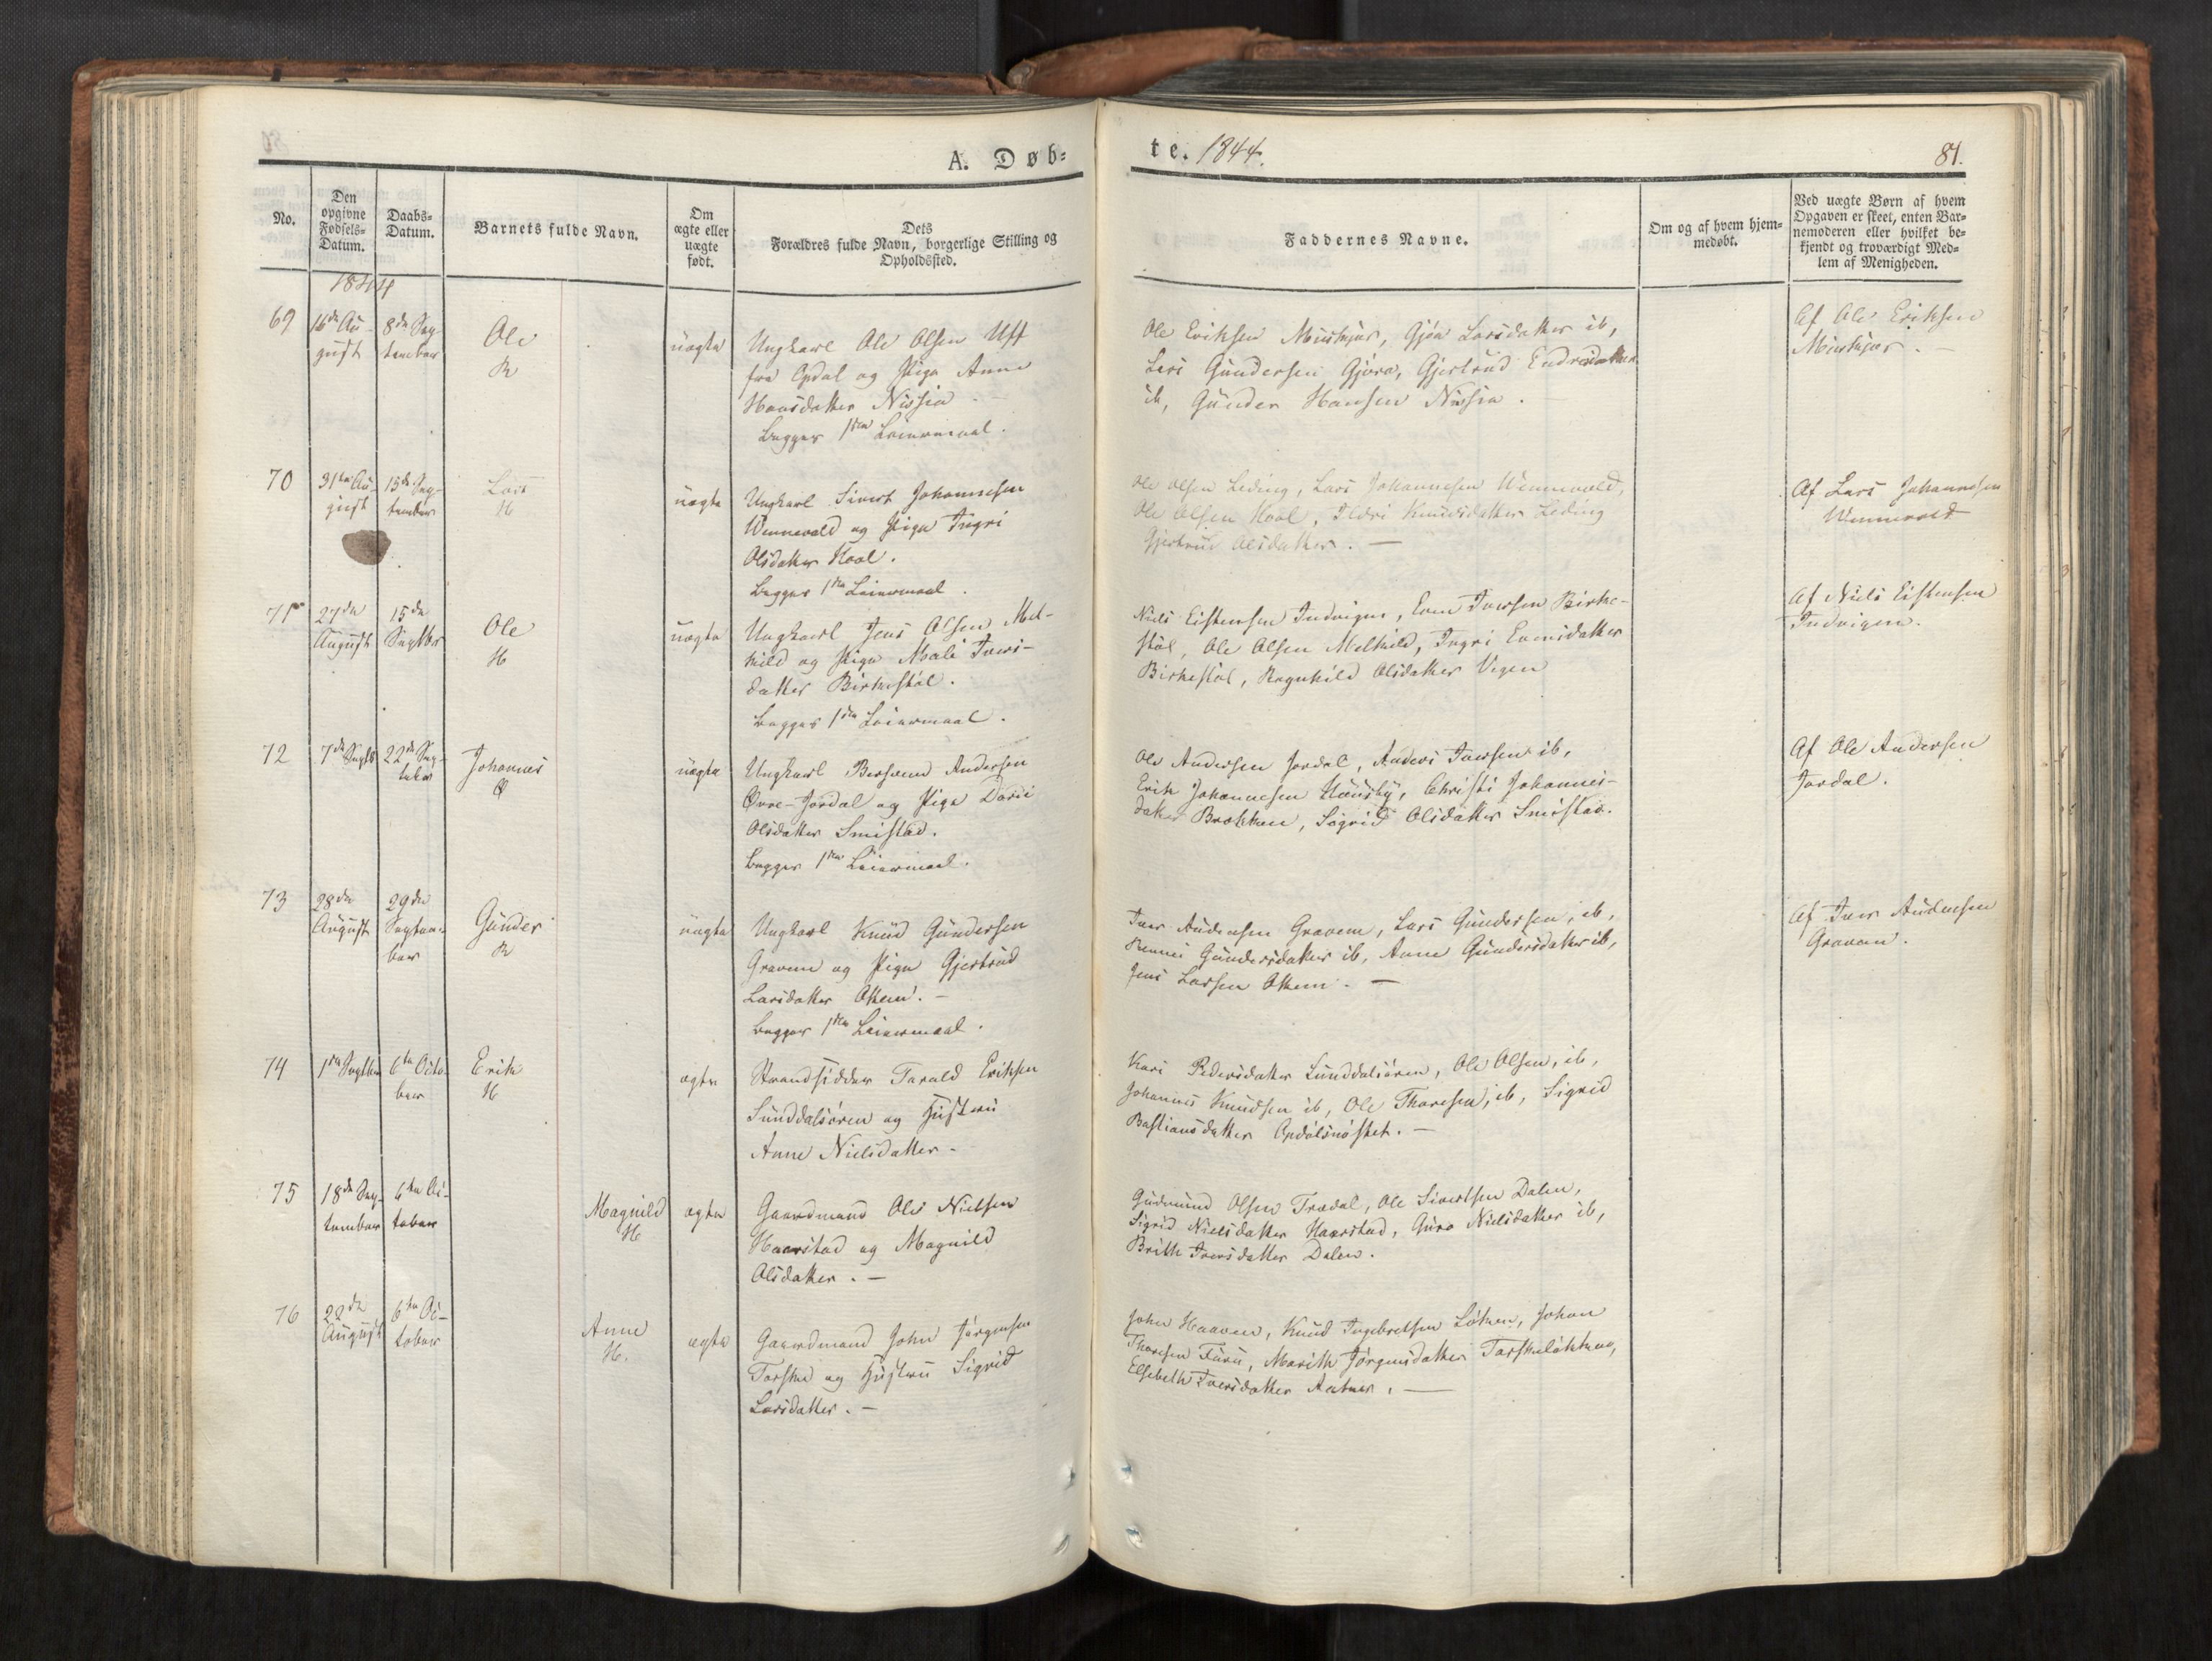 A. Døb=
te. 1844.
81.
No.
Den opgivne Fødsels=Datum.
Daabs=Datum.
Barnets fulde Navn.
Om ægte eller uægte født.
Dets Forældres fulde Navn, borgerlige Stilling og Opholdssted.
Faddernes Navne.
Om og af hvem hjem=medøbt.
Ved uægte Børn af hvem Opgaven er skeet, enten Bar=nemoderen eller hvilket be=kjendt og troværdigt Med=lem af Menigheden.
1844
69
16de Au-
gust
8de Sep-
tember
Ole
R
uægte
Ungkarl Ole Olsen
fra Opdal og Pige Anne
Hansdatter Nisja
begges 1ste Leiermaal.
Ole Eriksen Muskjør, Gjøa Larsdatter ib,
Lars Gundersen Gjøra, Gjertrud Endresdatter
ib, Gunder Hansen Nisja.
Af Ole Eriksen
Muskjør. —
70
31te Au-
gust
15de Sep-
tember
Lars
H
uægte
Ungkarl Sivert Johannesen
Wennevold og Pige Ingri
Olsdatter Hool.
begges 1ste Leiermaal.
Ole Olsen Leding, Lars Johannesen Wennevold,
Ole Olsen Hool, Ildri Knudsdatter Leding
Gjertrud Olsdatter. —
Af Lars Johannesen
Wennevold
71
27de
August
15de
Septbr
Ole
H
uægte
Ungkarl Jens Olsen Mel-
kild og Pige Mali Ivers-
datter Birkestøl.
begges 1ste Leiermaal.
Niels Eistensen Indvigen, Even Iversen Birke-
støl, Ole Olsen Melkild, Ingri Evensdatter
Birkestøl, Ragnhild Olsdatter Vigen
Af Niels Eistensen
Indvigen.
72
7de Septb
22de Sep-
tebr
Johannes
Ø
uægte
Ungkarl Andersen
Øvre-Jordal og Pige Dorde
Olsdatter Smistad.
begges 1ste Leiermaal.
Ole Andersen Jordal, Anders Iversen ib,
Erik Johannesen Huusby, Christi Johannes-
datter Brækken, Sigrid Olsdatter Smistad.
Af Ole Andersen
Jordal.
73
28de
August
29de
Septem-
ber
Gunder
R
uægte
Ungkarl Knud Gundersen
Gravem og Pige Gjertrud
Larsdatter Ottem. —
begges 1ste Leiermaal.
Iver Audensen Gravem, Lars Gundersen, ib,
Gundersdatter ib, Anne Gundersdatter ib,
Jens Larsen Ottem. —
Af Iver Audensen
Gravem.
74
1ste Septbr
6te Octo-
ber
Erik
H
ægte
Strandsidder Tarald Eriksen
Sunddalsøren og Hustru
Anne Nielsdatter —
Kari Pedersdatter Sunddalsøren, Ole Olsen, ib,
Johannes Knudsen ib, Ole Thoresen, ib, Sigrid
Bastiansdatter Opdølsnøstet. —
75
18de Sep-
tember
6te Oc-
tober
Magnild
H
ægte
Gaardmand Ole Nielsen
Haarstad og Magnild
Olsdatter. —
Gudmund Olsen Trædal, Ole Sivertsen Dalen,
Sigrid Nielsdatter Haarstad, Guro Nielsdatter ib,
Brith Iversdatter Dalen.
76
22de
August
6te Oc-
tober
Anne
H.
ægte
Gaardmand John Jørgensen
Torske og Hustru Sigrid
Larsdatter. —
John Haaven, Knud Ingebretsen Løken, Johan
Thoresen Furu, Marith Jørgensdatter Torskeløkken,
Elsebeth Iversdatter —